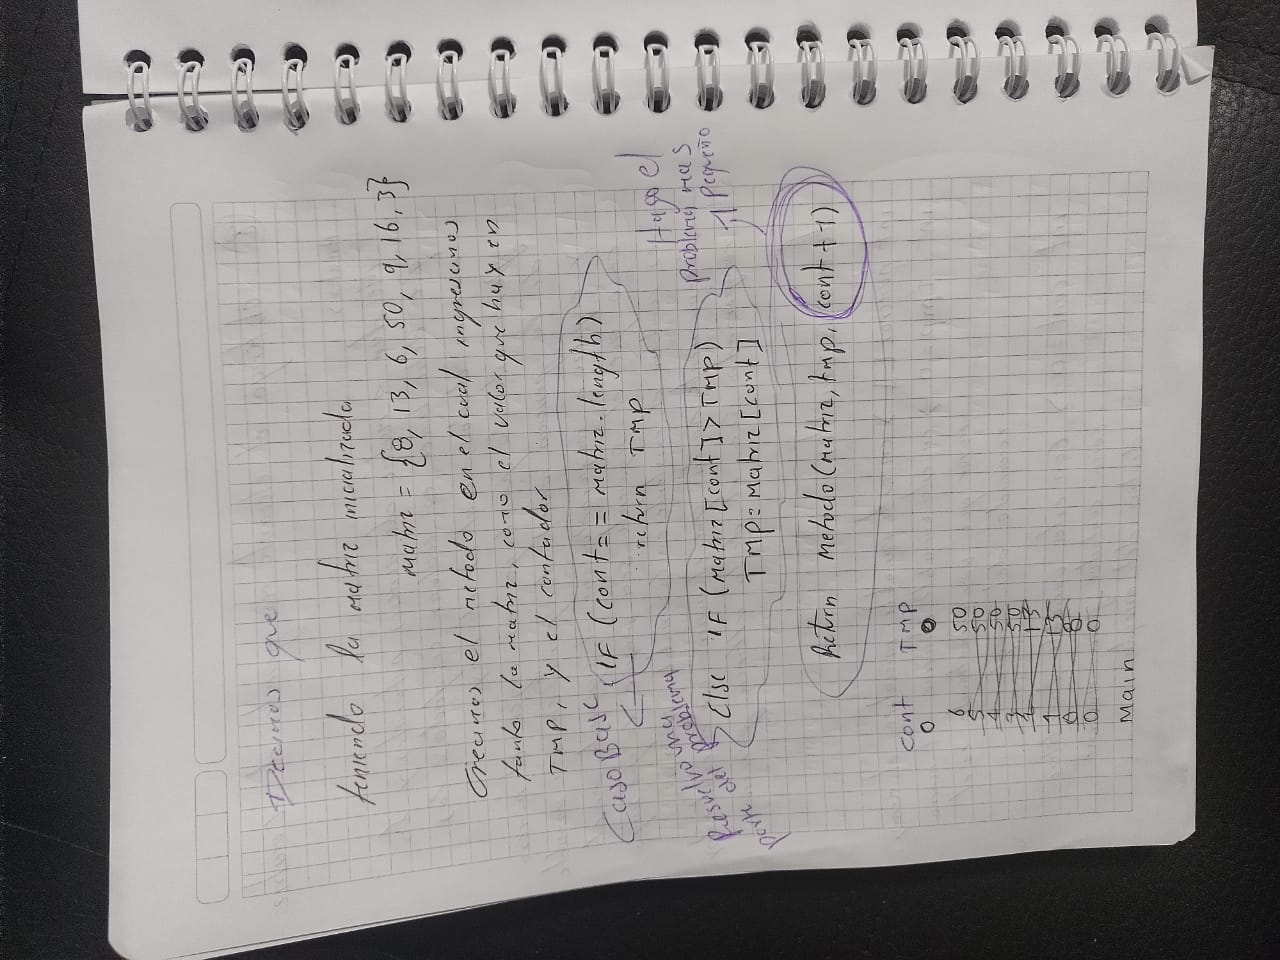 Decimos que
teniendo la matriz inicializada
matriz = {8, 13, 6, 50, 9, 16, 3}
Creamos el metodo en el cual ingresamos
tanto la matriz, como el valor que hay en
TMP, y el contador
Caso Base
IF (cont == matriz.length)
return TMP
Resuelvo una
parte del problema
Else IF (Matriz[cont] > TMP)
TMP = Matriz[cont]
Hago el
problema mas
pequeño
Return Metodo(Matriz, tmp, cont + 1)
cont TMP
0 0
6 50
5 50
4 50
3 50
2 13
1 13
0 8
0 0
Main